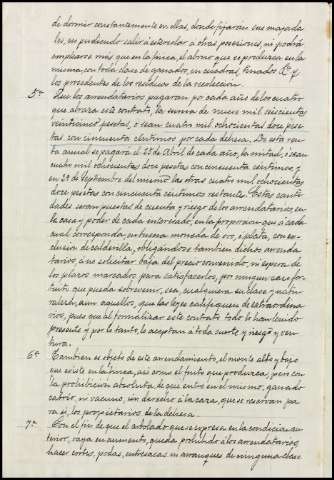 de dormir constantemente en ellas, donde fijarán sus majada
les, no pudiendo salir á estercolar á otras posesiones, ni podrá
emplearse más que en la finca, el abono que se produzca en la
misma, con toda clase de ganados, en cuadras, tinados &ª y
los procedentes de los residuos de la recolección.
5ª Que los arrendatarios pagarán por cada año de los cuatro
que abraza este contrato, la suma de nueve mil seiscientas
veinticinco pesetas, ó sean cuatro mil ochocientas doce pese
tas con cincuenta céntimos por cada dehesa. De esta ren
ta anual se pagará el 25 de Abril de cada año, la mitad, ó sean
cuatro mil ochocientas doce pesetas con cincuenta céntimos y
en 29 de Septiembre del mismo las otras cuatro mil ochocientas
doce pesetas con cincuenta céntimos restantes. Estas canti
dades serán puestas de cuenta y riesgo de los arrendatarios, en
la casa y poder de cada interesado, en la proporción que á cada
cual corresponda, en buena moneda de oro, ó plata, con ex
clusión de calderilla, obligándose también dichos arrenda
tarios á no solicitar baja del precio convenido, ni espera de
los plazos marcados para satisfacerlos, por ningún caso for
tuito que pueda sobrevenir, sea cualquiera su clase y natu
raleza, aun aquellos, que las leyes califiquen de extraordina
rios, pues que al formalizar este contrato todo lo han tenido
presente y por lo tanto, lo aceptan á toda suerte y riesgo y ven
tura.
6ª También es objeto de este arrendamiento, el monte alto y bajo
que existe en la finca, así como el fruto que produzca; pero con
la prohibición absoluta de que entre en el mismo, ganado
cabrío, ni vacuno, sin derecho á la caza, que se reservan pa
ra sí, los propietarios de la dehesa.
7ª Con el fin de que el arbolado que se expresa en la condición an
terior, vaya en aumento, queda prohibido á los arrendatarios
hacer cortes, podas, entresacas ni arranques de ninguna clase